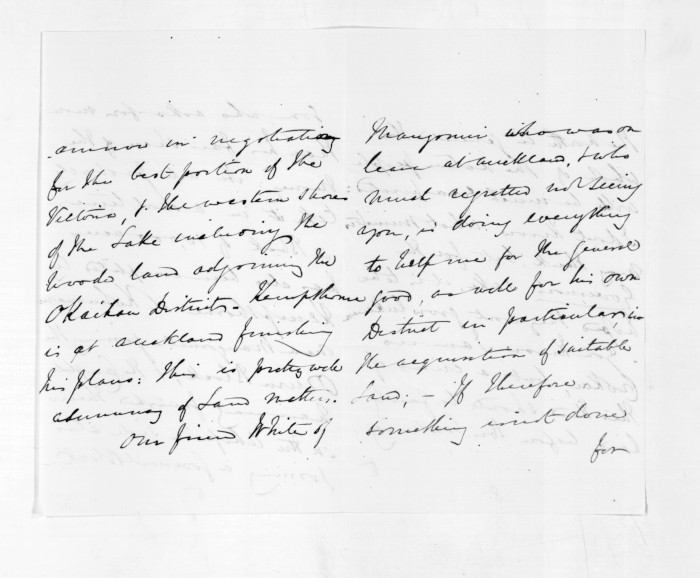 in negotiating
for the best portion of the
Victoria, & the western shores
of the Lake inclosing the
Woods land adjoining the
Okaihau Districts - Kempthorne
is at Auckland finishing
his plans: This is pretty well
a summary of Land matters.
Our friend White of
Mangonui who was on
leave at Auckland, & who
much regretted not seeing
you, is doing everything
to help me for the general
good, as well for his own
District in particular, in
the acquisition of suitable
Land; - If therefore
something isn't done
for